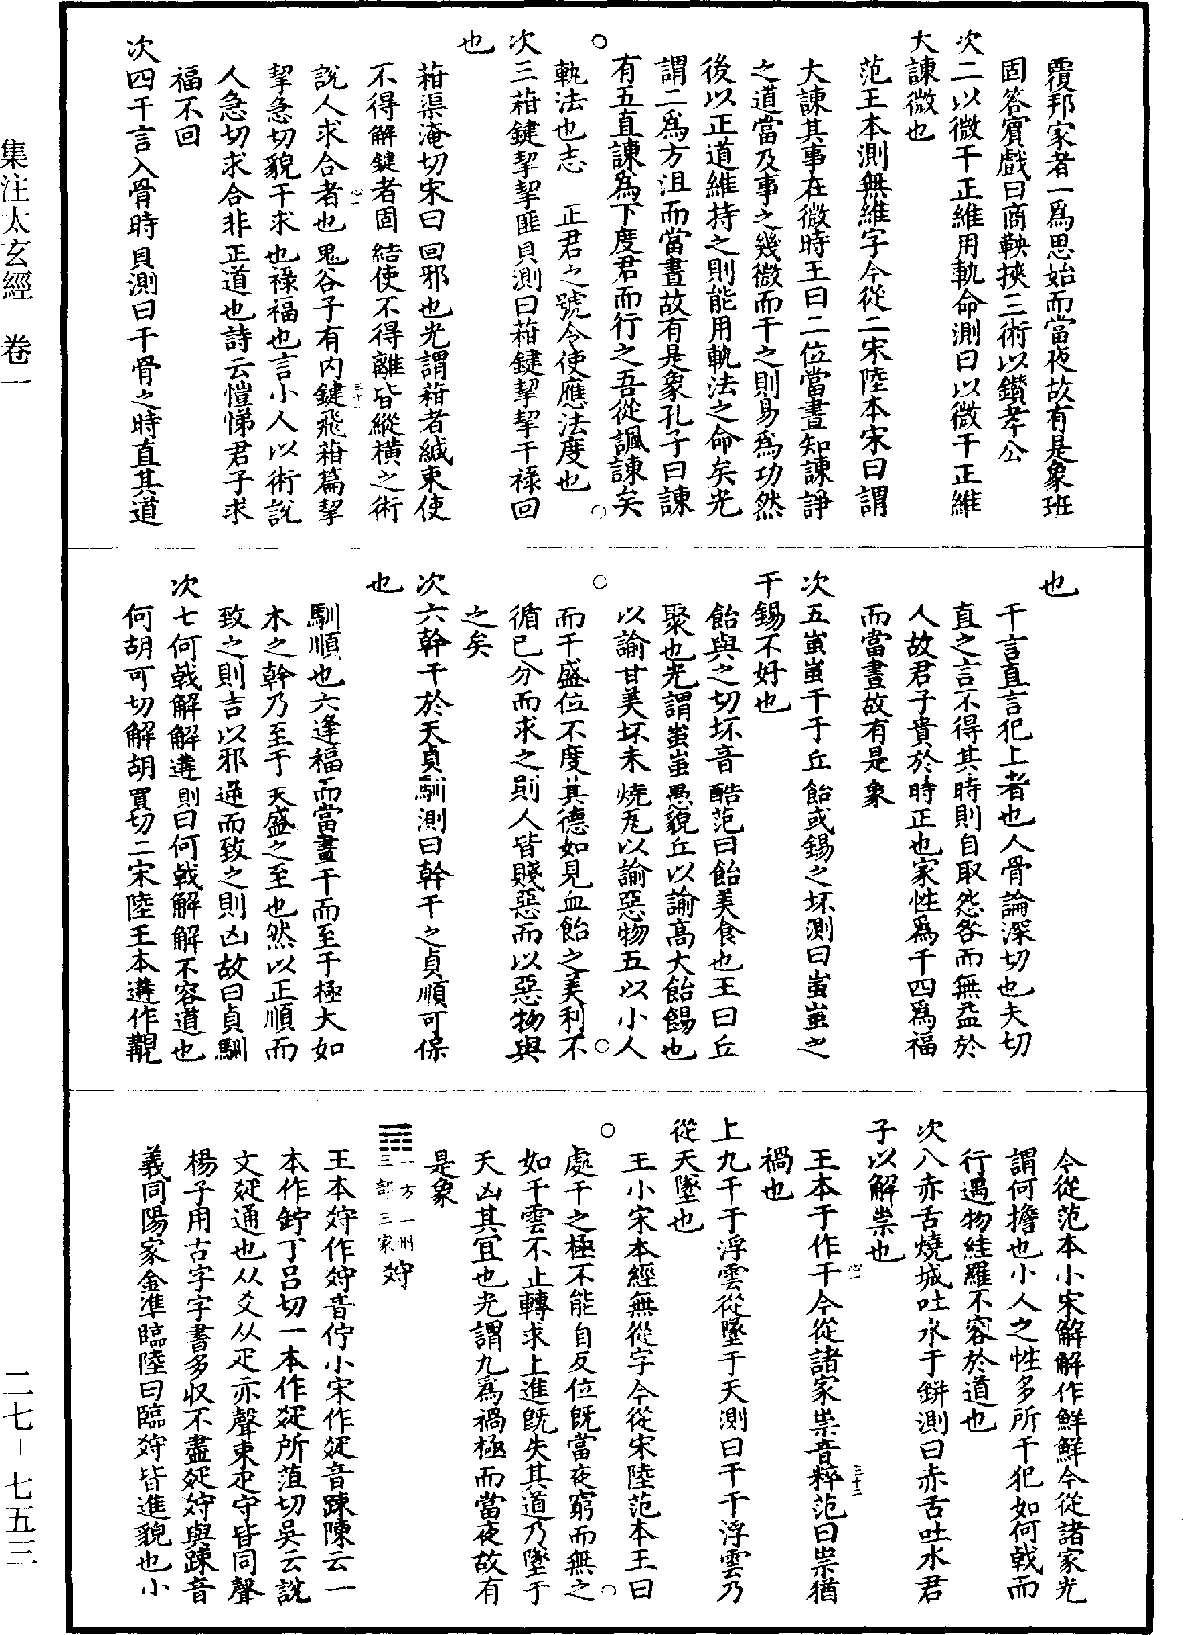 覆邦家者一爲思始而當夜故有是象班
固答賓戲曰商鞅挾三術以鑽孝公
次二以微干正維用軌命測曰以微干正維
大諫微也
范王本測無維字今從二宋陸本宋曰謂
大諫其事在微時王曰二位當晝知諫諍
之道當及事之幾微而干之則易爲功然
後以正道維持之則能用軌法之命矣光
謂二爲方沮而當晝故有是象孔子曰諫
有五直諫爲下度君而行之吾從諷諫矣
軌法也志 正君之號令使應法度也
次三葙鍵挈挈匪貝測曰葙鍵挈挈干祿回
也
葙渠淹切宋曰回邪也光謂葙者緘束使
不得解鍵者固結使不得離皆縱橫之術
說人求合者也鬼谷子有内鍵飛葙篇挈
挈急切貌干求也祿福也言小人以術說
人急切求合非正道也詩云愷悌君子求
福不回
次四干言入骨時貝測曰干骨之時直其道
也
干言直言犯上者也人骨論深切也夫切
直之言不得其時則自取怨咎而無益於
人故君子貴於時正也家性爲干四爲福
而當晝故有是象
次五蚩蚩干于丘飴或錫之坏測曰蚩蚩之
干錫不好也
飴與之切坏音醅范曰飴美食也王曰丘
聚也光謂蚩蚩愚貌丘以諭高大飴餳也
以諭甘美坏未燒瓦以諭惡物五以小人
而干盛位不度其德如見血飴之美利不
循已分而求之則人皆賤惡而以惡物與
之矣
次六幹干於天貞馴測曰幹干之貞順可保
也
馴順也六逢福而當晝干而至于極大如
木之幹乃至于天盛之至也然以正順而
致之則吉以邪逆而致之則凶故曰貞馴
次七何戟解解遘測曰何戟解解不容道也
何胡可切解胡買切二宋陸王本遘作覯
今從范本小宋解解作鮮鮮今從諸家光
謂何擔也小人之性多所干犯如何戟而
行遇物絓羅不容於道也
次八赤舌燒城吐水于缾測曰赤舌吐水君
子以解祟也
王本于作干今從諸家祟音粹范曰祟猶
禍也
上九干于浮雲從墜于天測曰干干浮雲乃
從天墜也
王小宋本經無從字今從宋陸范本王曰
處干之極不能自反位旣當夜窮而無之
如干雲不止轉求上進旣失其道乃墜于
天凶其宜也光謂九爲禍極而當夜故有
是象
一方一州
三部三家㹑
王本㹑作㹑音佇小宋作䟽音踈陳云一
本作䇡丁呂切一本作䟽所菹切吳云說
文䟽通也从爻从疋亦聲束疋守皆同聲
楊子用古字字書多収不盡䟽㹑與踈音
義同陽家金準臨陸曰臨㹑皆進貌也小
集注太玄經 卷一
二七－七五三